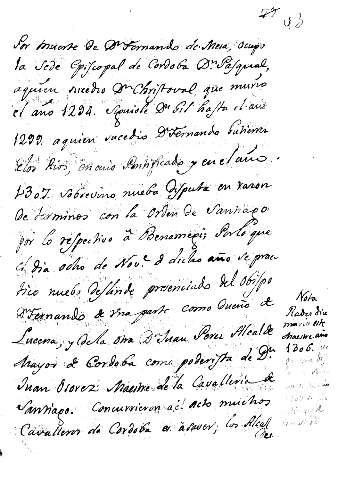 Por muerte de Dn Fernando de Mesa, ocupo
la Sede Episcopal de Cordoba Dn Pasqual,
a quien sucedio Dn Christoval, que murio
el año 1294. Siguiole Dn Gil hasta el año
1299. a quien sucedio Dn Fernando Gutierrez
de los Rios, en cuio Pontificado y en el año
1307. sobrevino nueba disputa en razon
de terminos con la Orden de Santiago
por lo respectivo à Benamegi; Por lo que
el dia ocho de Nove. de dicho año se prac
tico nuebo deslinde presenciado del Obispo
Dn Fernando de una parte como dueño de
Lucena; y de la otra Dn Juan Perez Alcalde
Mayor de Cordoba como poderista de Dn
Juan Osorez Maestre de la Cavalleria de
Santiago. Concurrieron a el acto muchos
Cavalleros de Cordoba es a saver; los Alcal
des
Nota
Rades dice
murio este
Maestre año
1306.